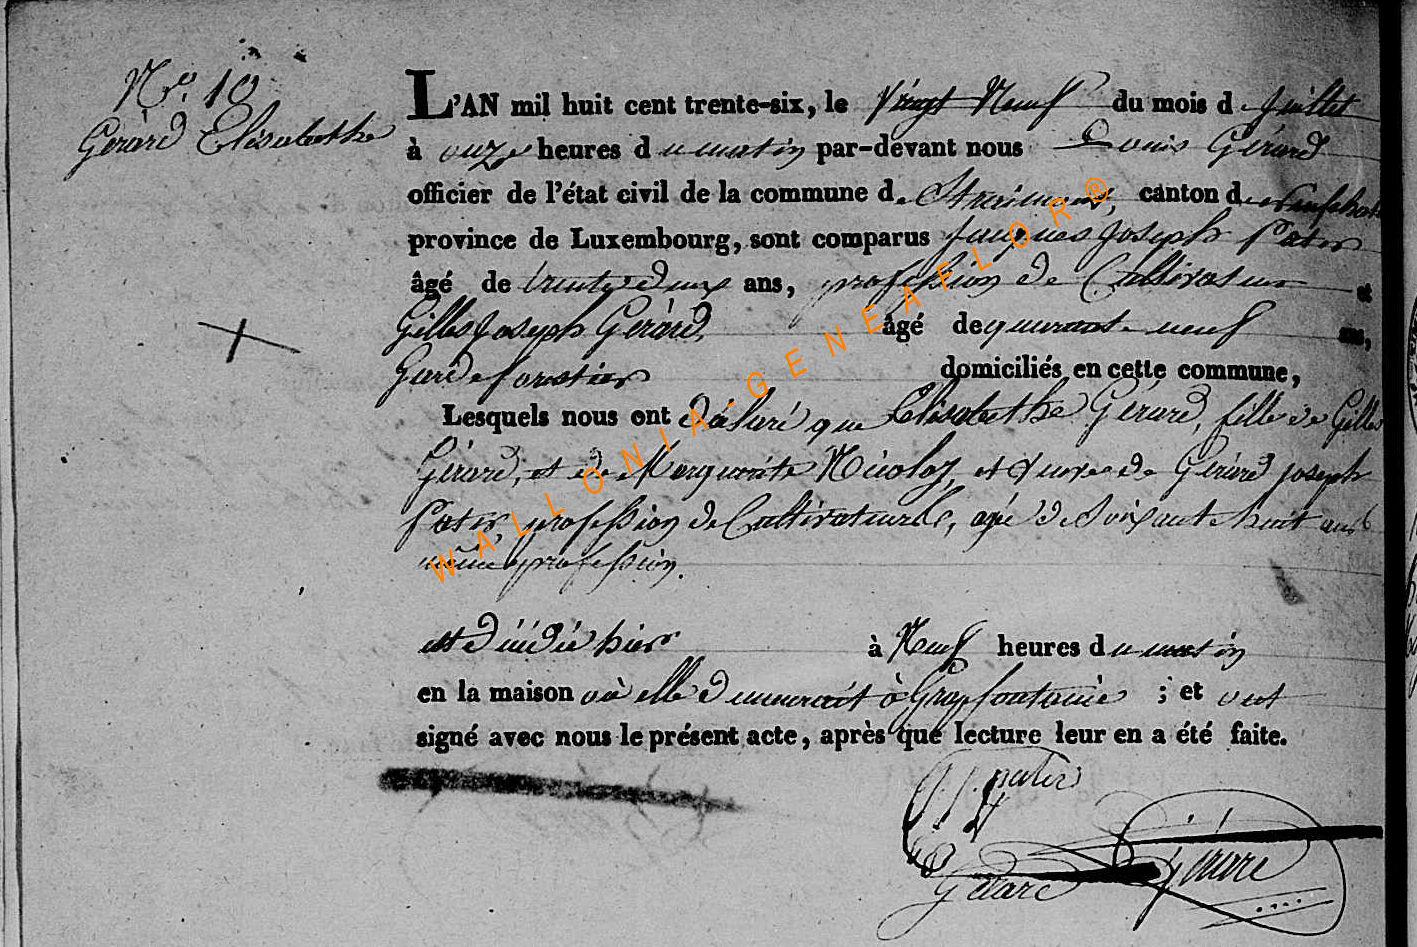 No. 10
Gérard Elisabethe
L'AN mil huit cent trente-six, le Vingt Neuf du mois de Juillet
à onze heures du matin par-devant nous Louis Gérard
officier de l'état civil de la commune de Straimont, canton de Neufchat
province de Luxembourg, sont comparus Jacques Joseph Pater
âgé de trente deux ans, profession de Cultivateur et
Gilles Joseph Gérard, âgé de quarante neuf ans,
Garde forestier domiciliés en cette commune,
Lesquels nous ont déclaré que Elisabethe Gérard, fille de Gilles
Gérard, et de Marguerite Nicolas, et Veuve de Gérard joseph
Pater, profession de Cultivateur, agé de Soixante huit ans
même profession.
est décédée hier à Neuf heures du matin
en la maison où elle demeurait à Grapfontaine ; et ont
signé avec nous le présent acte, après que lecture leur en a été faite.
J. J. pater
Gérard Gérard
WALLONIA-GENEAFLOR®